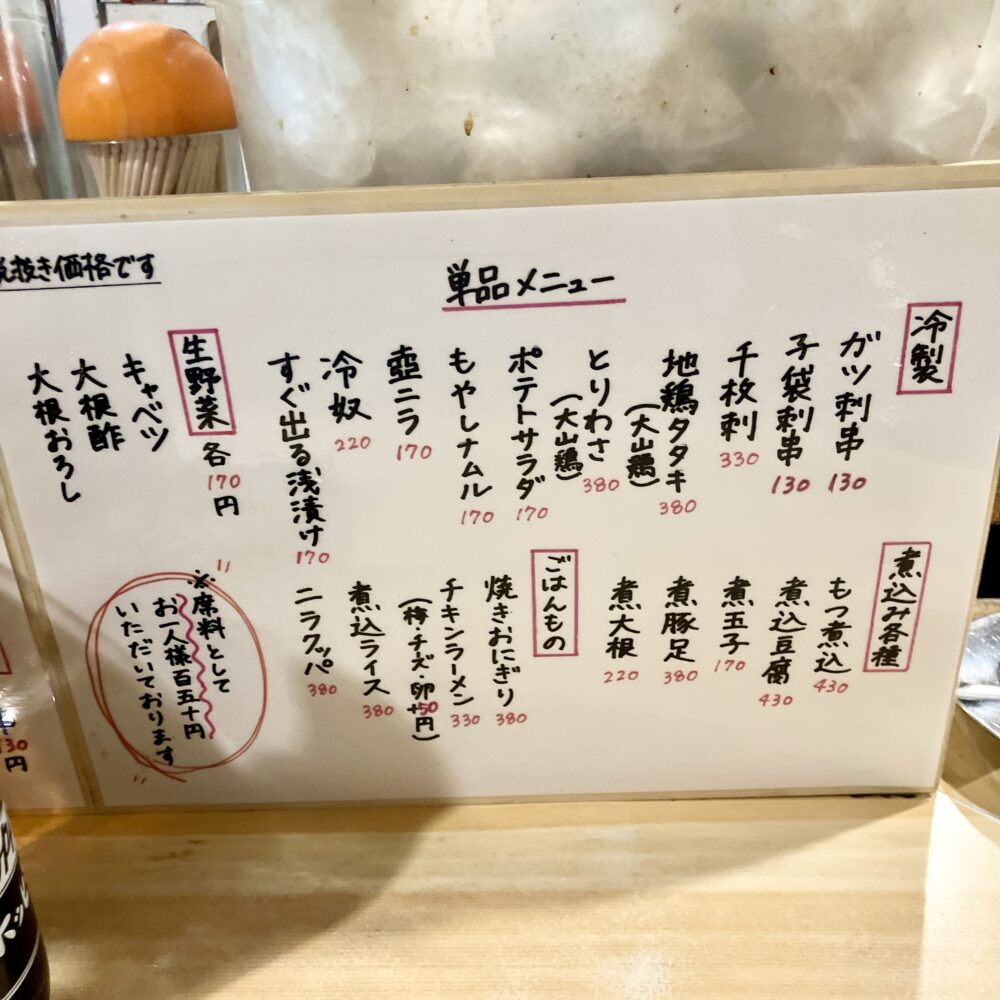 抜き価格です
単品メニュー
冷製
ガツ刺串
130
子袋刺串
130
千枚刺
330
地鶏タタキ
(大山鶏)
380
とりわさ
(大山鶏)
380
ポテトサラダ
170
もやしナムル
170
壺ニラ
170
冷奴
220
すぐ出る浅漬け
170
生野菜 各170円
キャベツ
大根酢
大根おろし
煮込み各種
もつ煮込
430
煮込豆腐
430
煮玉子
170
煮豚足
380
煮大根
220
ごはんもの
焼きおにぎり
380
チキンラーメン
330
(梅・チーズ・卵+50円)
煮込ライス
380
ニラクッパ
380
※席料として
お一人様百五十円
いただいております
130
円